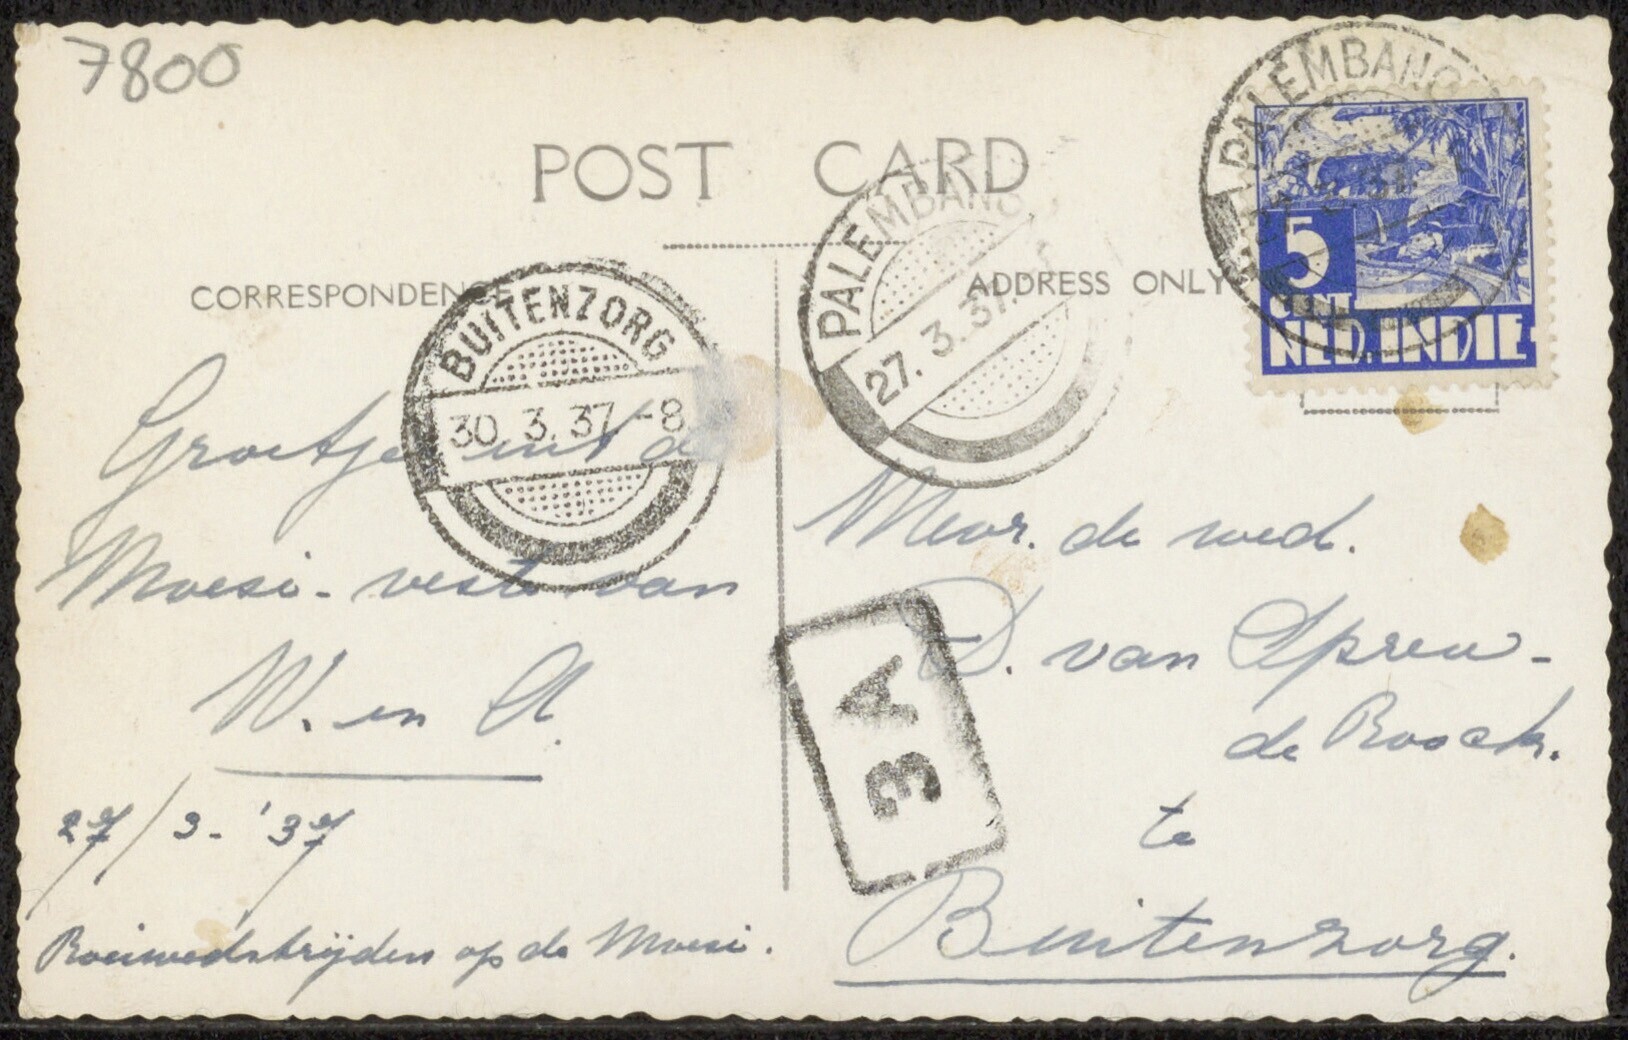 7800
POST CARD
CORRESPONDENCE
ADDRESS ONLY
PALEMBANG
5
cent
NED. INDIE
PALEMBANG
27. 3. 37.
BUITENZORG
30. 3. 37.-8
3A
Groetjes uit de
Moesi-veste van
W. en A.
27/3-'37
Roeiwedstrijden op de Moesi.
Mevr. de wed.
D. van Spreeu-
de Roock.
te
Buitenzorg.